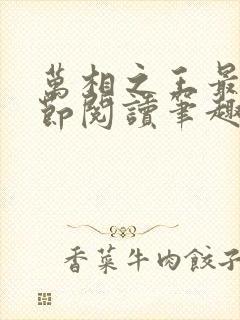 萬相之王最
節閱讀筆趣
香菜牛肉餃子